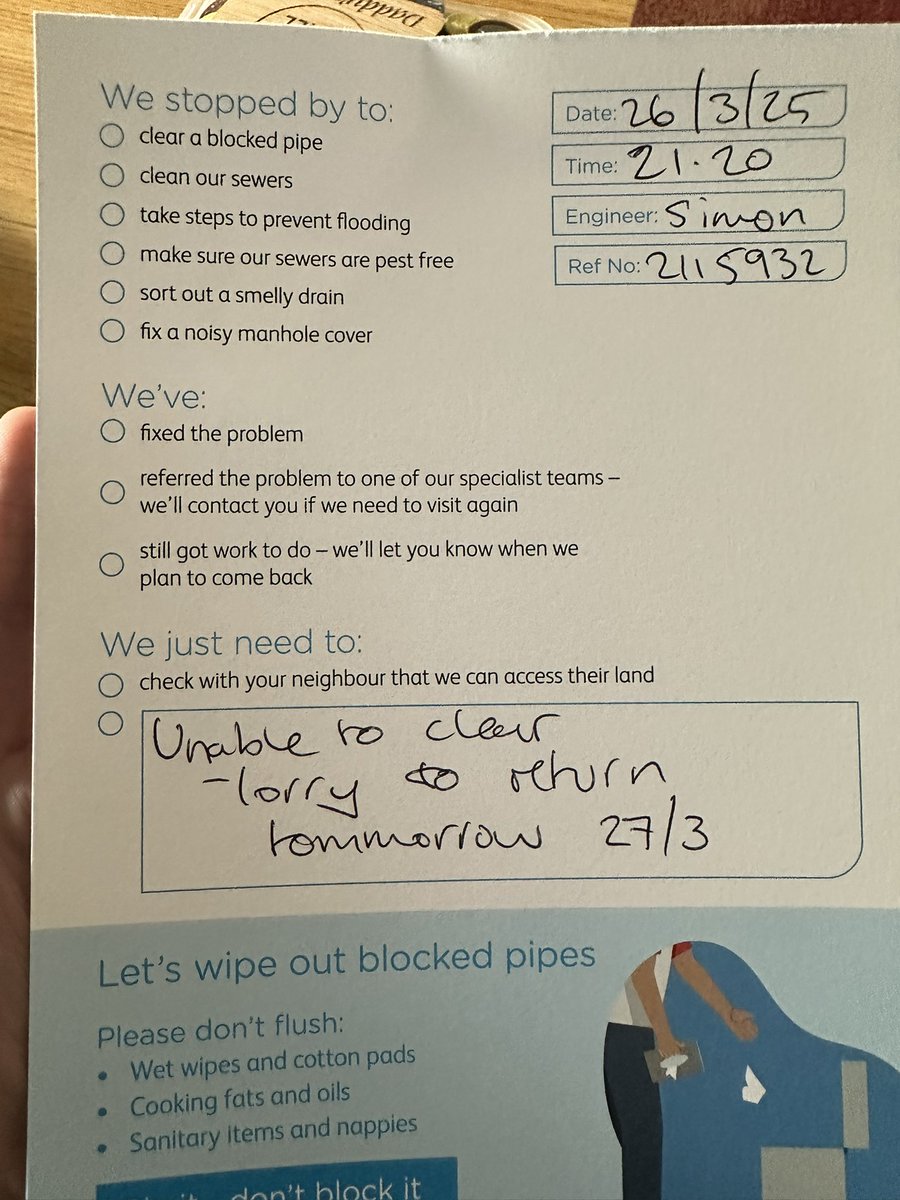 We stopped by to:
clear a blocked pipe
clean our sewers
take steps to prevent flooding
make sure our sewers are pest free
sort out a smelly drain
fix a noisy manhole cover
Date: 26/3/25
Time: 21.20
Engineer: Simon
Ref No: 2115932
We've:
fixed the problem
referred the problem to one of our specialist teams –
we'll contact you if we need to visit again
still got work to do – we'll let you know when we
plan to come back
We just need to:
check with your neighbour that we can access their land
Unable to clear
- lorry to return
tommorrow 27/3
Let's wipe out blocked pipes
Please don't flush:
• Wet wipes and cotton pads
• Cooking fats and oils
• Sanitary items and nappies
don't block it